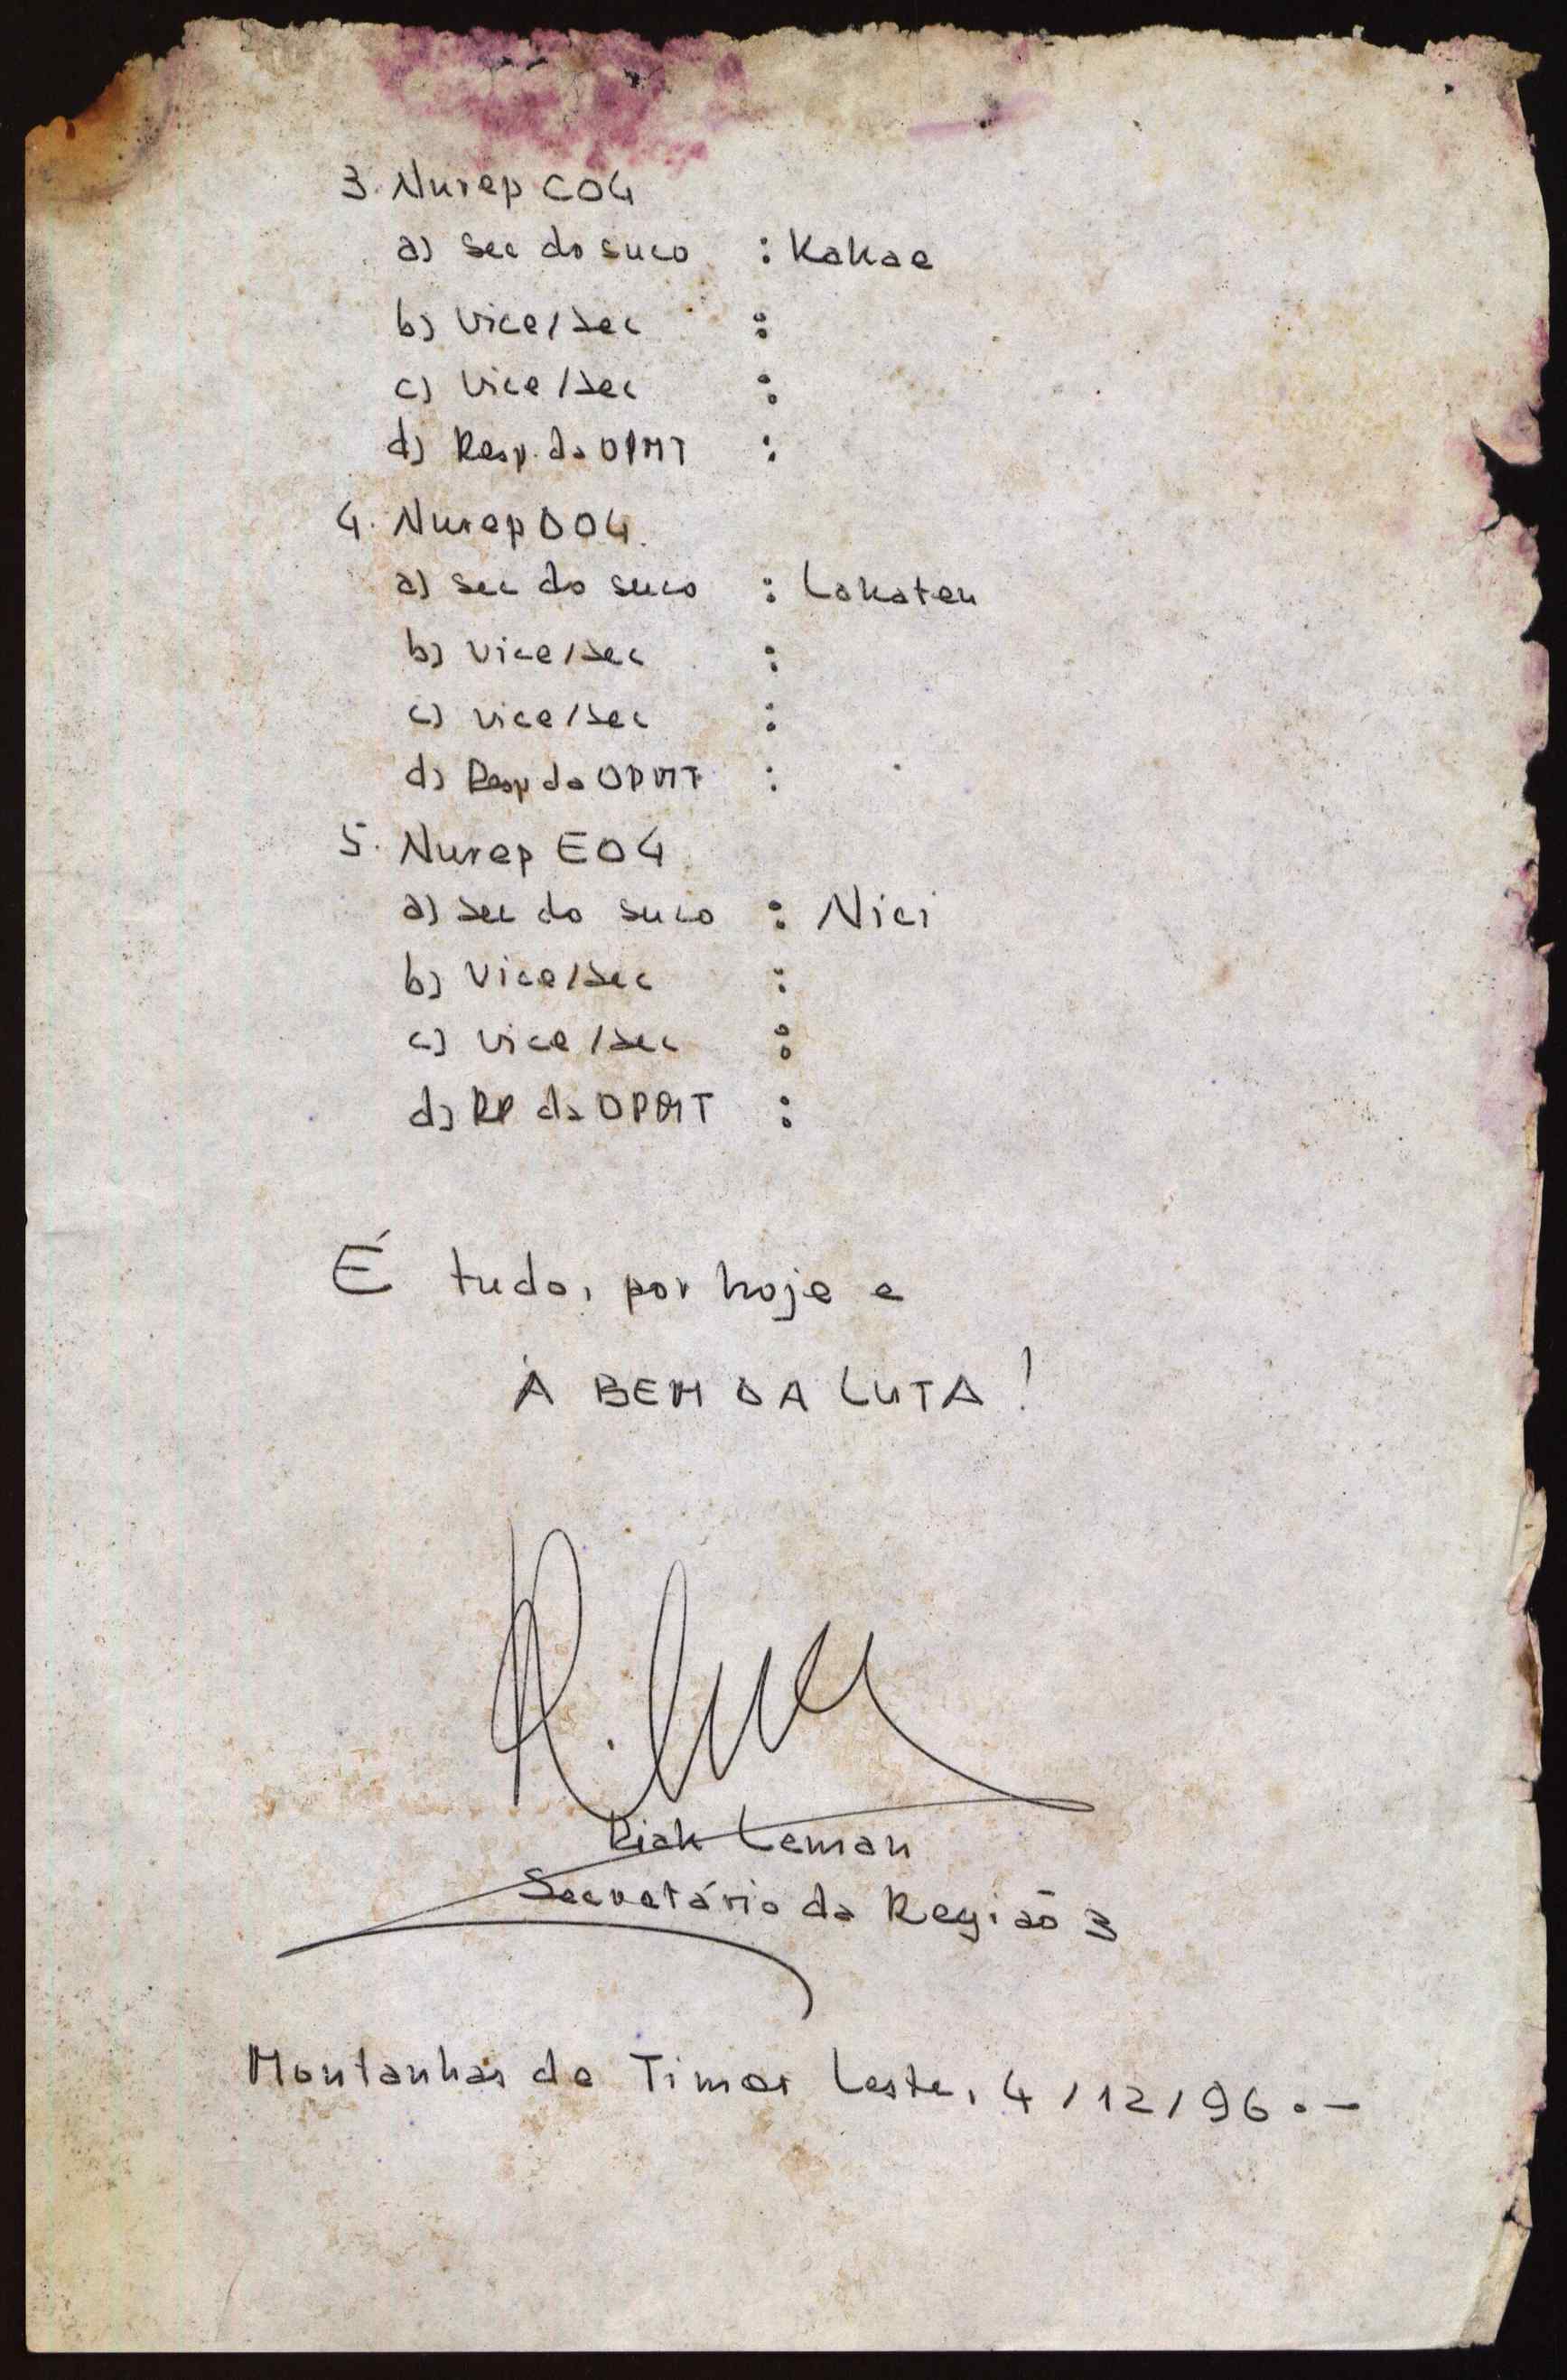 3. Nurep C04
a) Sec do suco : Kakae
b) Vice/Sec :
c) Vice/Sec :
d) Resp. da OPMT :
4. Nurep D04.
a) Sec do suco : Lakateu
b) Vice/Sec :
c) Vice/Sec :
d) Resp da OPMT :
5. Nurep E04
a) Sec do suco : Nici
b) Vice/Sec :
c) Vice/Sec :
d) RP da OPMT :
É tudo, por hoje e
À BEM DA LUTA!
Riak Leman
Secretário da Região 3
Montanhas de Timor Leste, 4/12/96.-